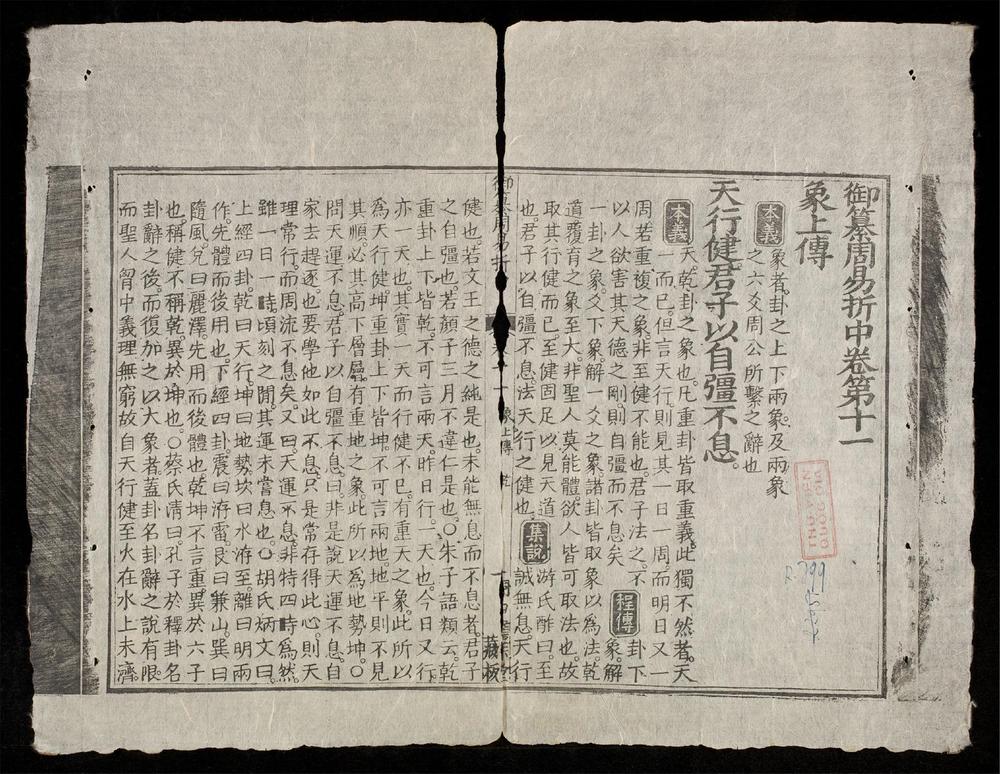 御纂周易折中卷第十一
象上傳
本義
象者卦之上下兩象及兩象
之六爻周公所繫之辭也
天行健君子以自彊不息。
本義
天乾卦之象也凡重卦皆取重義此獨不然者天
一而已但言天行則見其一日一周而明日又一
周若重複之象非至健不能也君子法之不
以人欲害其天德之剛則自彊而不息矣
程傳
卦下象解
一卦之象爻下象解一爻之象諸卦皆取象以為法乾
道覆育之象至大非聖人莫能體欲人皆可取法也故
取其行健而已至健固足以見天道
也君子以自彊不息法天行之健也
集說
游氏酢曰至誠無息天行
健也若文王之德之純是也未能無息而不息者君子
之自彊也若顏子三月不違仁是也○朱子語類云乾
重卦上下皆乾不可言兩天昨日行一天也今日又行
亦一天也其實一天而行健不已有重天之象此所以
為天行健坤重卦上下皆坤不可言兩地地平則不見
其順必其高下層層有重地之象此所以為地勢坤○
問天運不息君子以自彊不息曰非是說天運不息自
家去趕逐也要學他如此不息只是常存得此心則天
理常行而周流不息矣又曰天運不息非特四時為然
雖一日一時頃刻之間其運未嘗息也○胡氏炳文曰
上經四卦乾曰天行坤曰地勢坎曰水洊至離曰明兩
作先體而後用也下經四卦震曰洊雷艮曰兼山巽曰
隨風兌曰麗澤先用而後體也乾坤不言重異於六子
也稱健不稱乾異於坤也○蔡氏清曰孔子於釋卦名
卦辭之後而復加之以大象者蓋卦名卦辭之說有限
而聖人胷中義理無窮故自天行健至火在水上未濟
御纂周易折
象上傳
乾
一
藏板
R.799